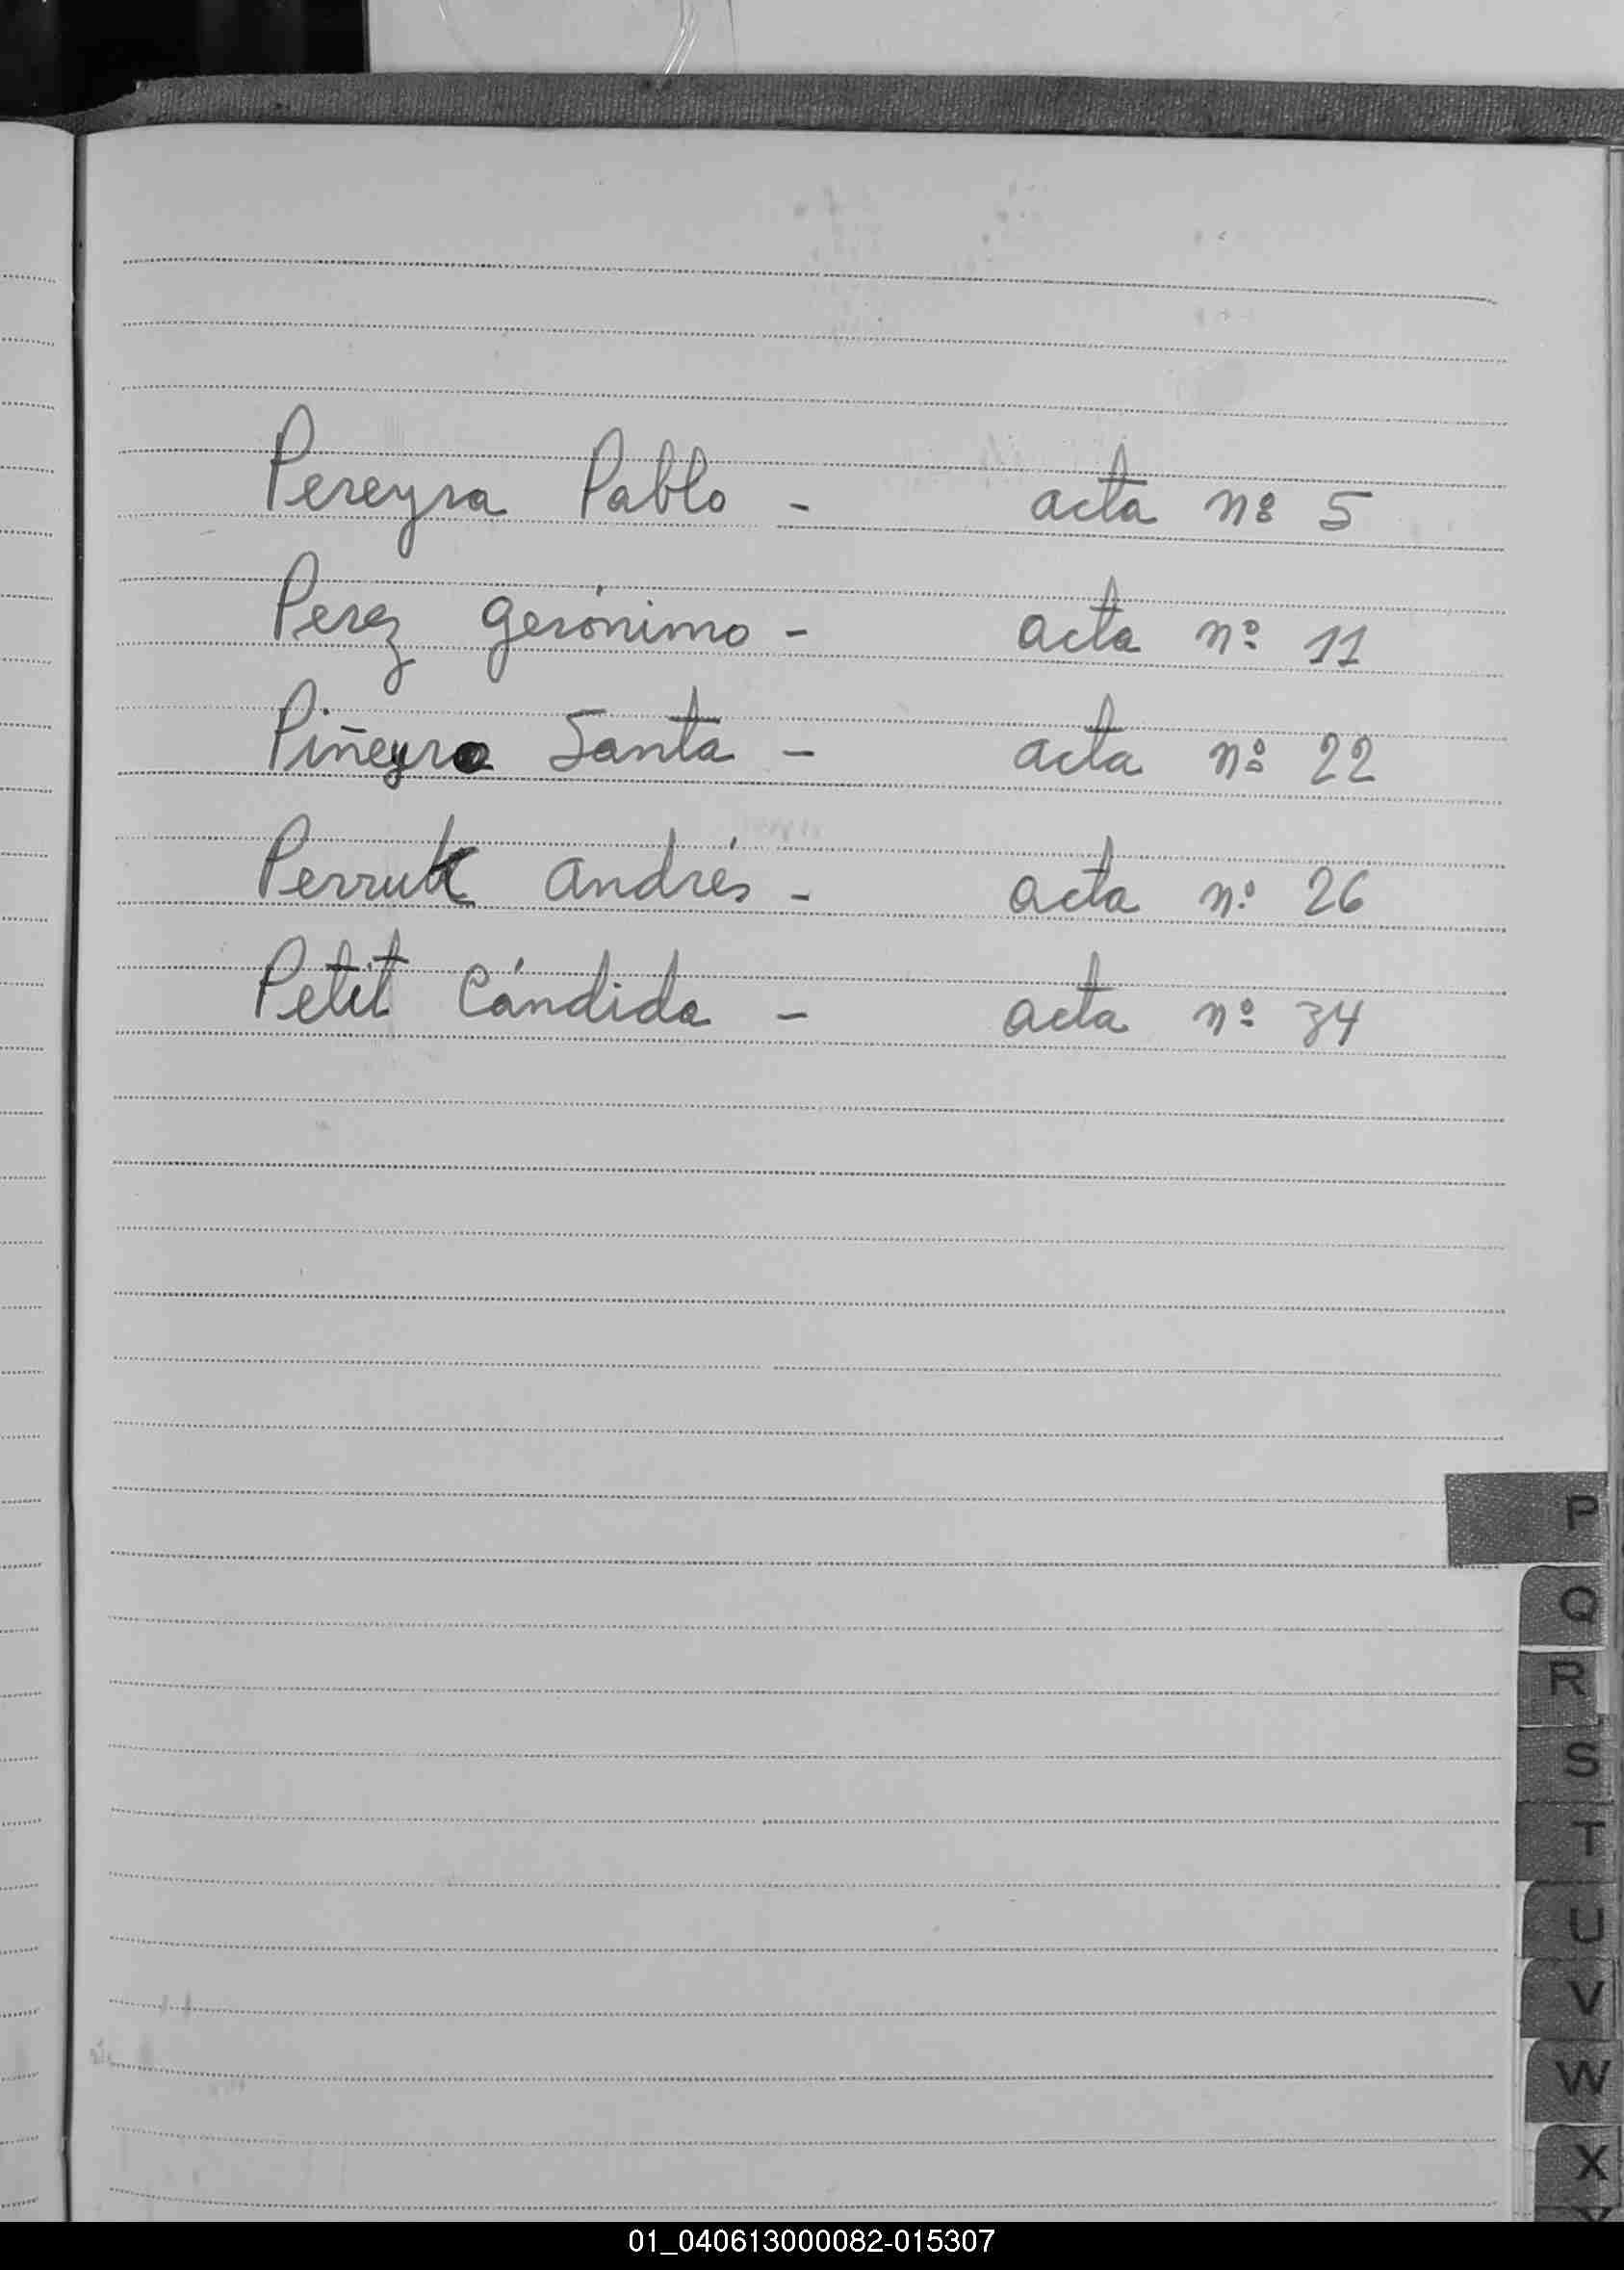 Pereyra Pablo - acta nº 5
Perez Gerónimo - acta nº 11
Piñeyro Santa - acta nº 22
Perruk Andrés - acta nº 26
Petit Cándida - acta nº 34
P
Q
R
S
T
U
V
W
X
01_040613000082-015307